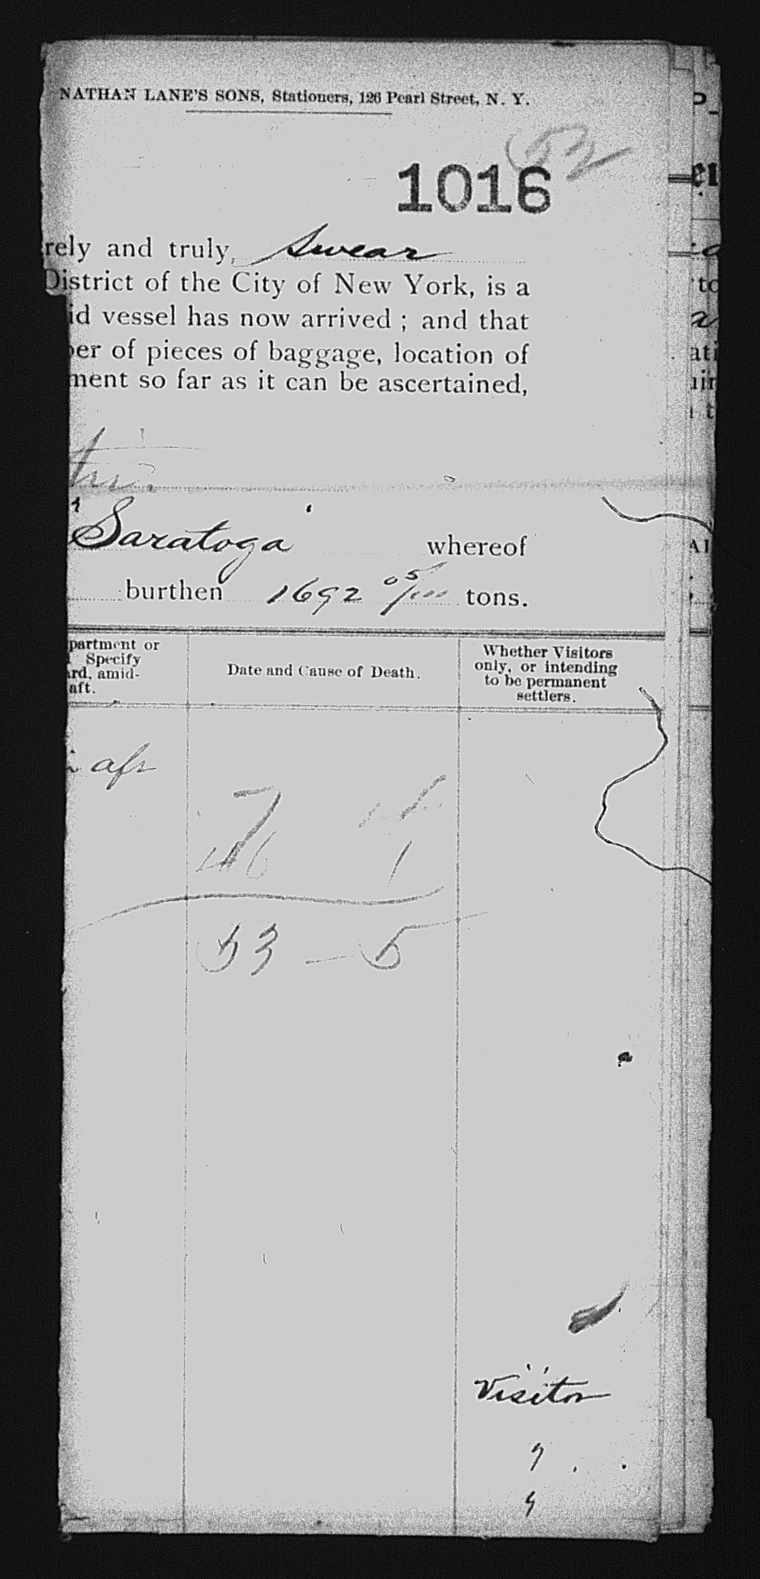 NATHAN LANE'S SONS, Stationers, 126 Pearl Street, N. Y.
52
1016
rely and truly, Swear
District of the City of New York, is a
id vessel has now arrived ; and that
ber of pieces of baggage, location of
ment so far as it can be ascertained,
Saratoga whereof
burthen 1692 05/100 tons.
partment or
Specify
ard, amid-
aft.
Date and Cause of Death.
Whether Visitors
only, or intending
to be permanent
settlers.
aft
7
46 1
53 — 5
Visitor
"
"